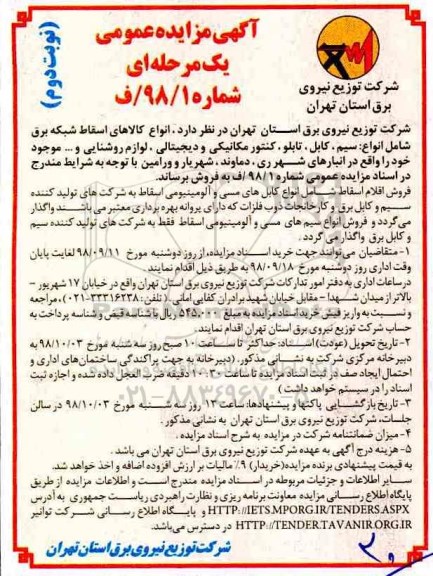 آگهی مزایده عمومی
یک مرحله‌ای
شماره ۹۸/۱/ف
(نوبت دوم)
شرکت توزیع نیروی
برق استان تهران
شرکت توزیع نیروی برق استان تهران در نظر دارد ، انواع کالاهای اسقاط شبکه برق
شامل انواع: سیم ، کابل ، تابلو ، کنتور مکانیکی و دیجیتالی ، لوازم روشنایی و ... موجود
خود را واقع در انبارهای شهر ری ، دماوند ، شهریار و ورامین با توجه به شرایط مندرج
در اسناد مزایده عمومی شماره ۹۸/۱/ف به فروش برساند.
فروش اقلام اسقاط شامل انواع کابل های مسی و آلومینیومی اسقاط به شرکت های تولید کننده
سیم و کابل برق و کارخانجات ذوب فلزات که دارای پروانه بهره برداری معتبر می باشند واگذار
می گردد و فروش انواع سیم های مسی و آلومینیومی اسقاط فقط به شرکت های تولید کننده سیم
و کابل برق واگذار می گردد .
۱- متقاضیان می‌توانند جهت خرید اسناد مزایده، از روز دوشنبه مورخ ۹۸/۰۹/۱۱ لغایت پایان
وقت اداری روز دوشنبه مورخ ۹۸/۰۹/۱۸ به طریق ذیل اقدام نمایند.
در ساعات اداری به دفتر امور تدارکات شرکت توزیع نیروی برق استان تهران واقع در خیابان ۱۷ شهریور -
بالاتر از میدان شهدا - مقابل خیابان شهید برادران کفایی امانی (تلفن: ۳۳۳۱۶۲۳۸-۰۲۱) ، مراجعه
و نسبت به واریز فیش خرید اسناد مزایده به مبلغ ۵۴۵،۰۰۰ ریال با شناسه قبض و شناسه پرداخت به
حساب شرکت توزیع نیروی برق استان تهران اقدام نمایند.
۲- تاریخ تحویل (عودت) اسناد: حداکثر تا ساعت ۱۰ صبح روز سه شنبه مورخ ۹۸/۱۰/۰۳ به
دبیرخانه مرکزی شرکت به نشانی مذکور. (دبیرخانه به جهت پراکندگی ساختمان‌های اداری و
احتمال ایجاد صف در ثبت اسناد مزایده تا ساعت ۱۰:۳۰ دقیقه ضرب العجل داده شده و اجازه ثبت
اسناد را در سیستم خواهد داشت)
۳- تاریخ بازگشایی پاکتها و پیشنهادها: ساعت ۱۳ روز سه شنبه مورخ ۹۸/۱۰/۰۳ در سالن
جلسات، شرکت توزیع نیروی برق استان تهران به نشانی مذکور .
۴- میزان ضمانتنامه شرکت در مزایده به شرح اسناد مزایده .
۵- هزینه درج آگهی به عهده شرکت توزیع نیروی برق استان تهران می باشد .
به قیمت پیشنهادی برنده مزایده (خریدار) ۹٪ مالیات بر ارزش افزوده اضافه و اخذ خواهد شد.
سایر اطلاعات و جزئیات مربوطه در اسناد مزایده مندرج است و اطلاعات مزایده از طریق
پایگاه اطلاع رسانی مزایده معاونت برنامه ریزی و نظارت راهبردی ریاست جمهوری به آدرس
HTTP://IETS.MPORG.IR/TENDERS.ASPX و پایگاه اطلاع رسانی شرکت توانیر
HTTP://TENDER.TAVANIR.ORG.IR در دسترس می‌باشد.
شرکت توزیع نیروی برق استان تهران